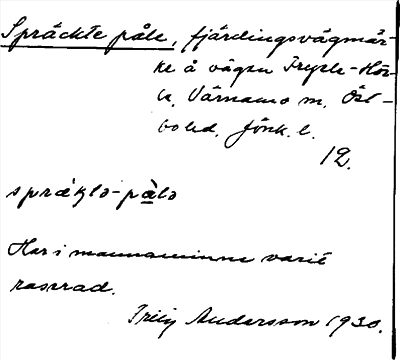 Spräckte påle, fjärdingsvägmär-
ke å vägen Fryele-Hör-
le, Värnamo sn. Öst-
bo hd. Jönk. l.
12.
språklə-pålə
Har i mannaminne varit
raserad.
Andersson 1930.